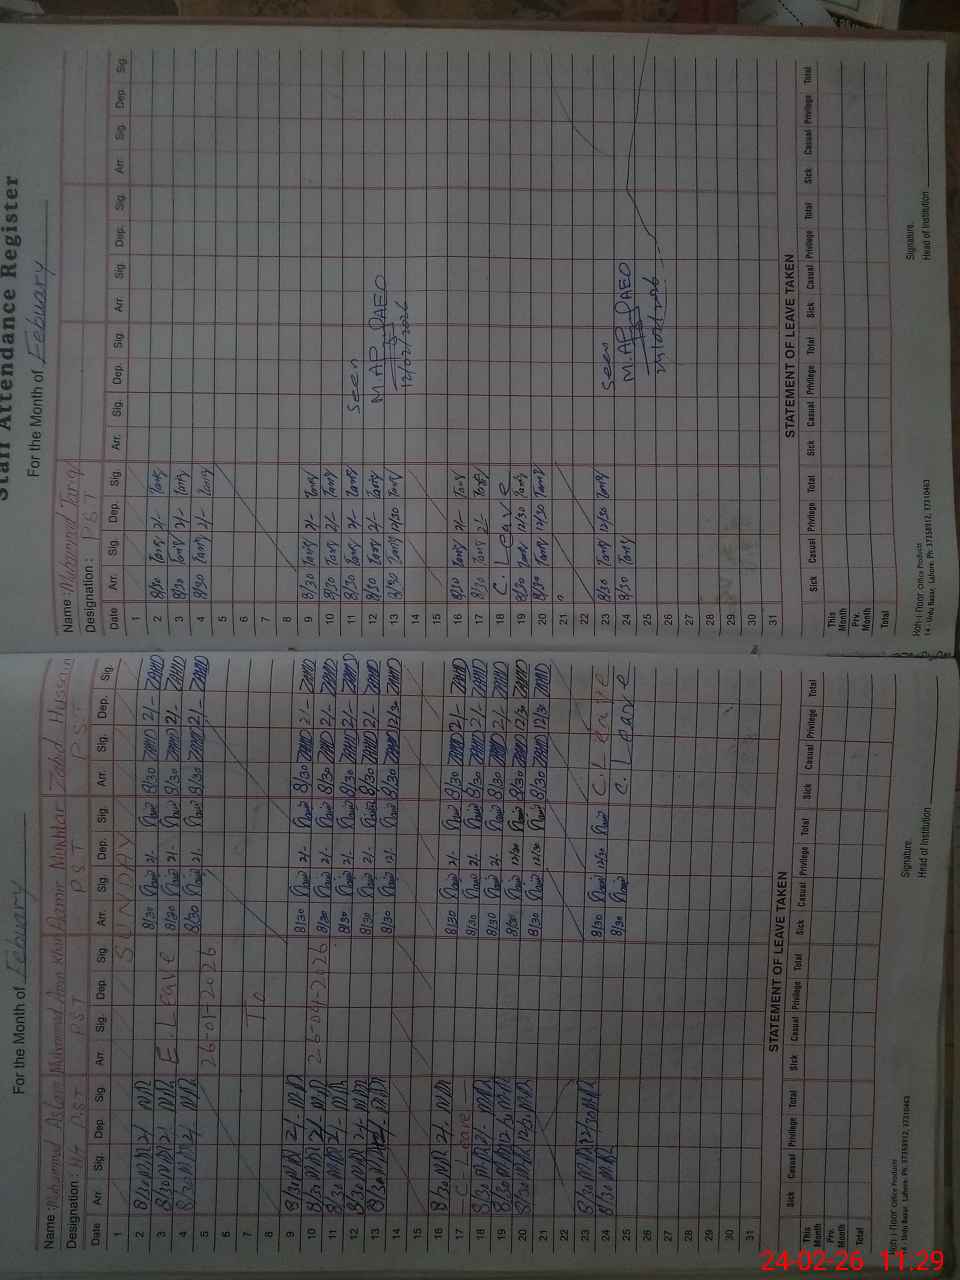 For the Month of Febuary
Name : Mohammad Aslam Muhammad Amin Khan Aamir Mukhtar Zahid Hussain
Designation : PST PST PST PST
Date Arr. Sig. Dep. Sig. Arr. Sig. Dep. Sig. Arr. Sig. Dep. Sig. Arr. Sig. Dep. Sig.
1 SUNDAY
2 8/30 2/- 8/30 2/- 8/30 2/-
3 8/30 2/- E. Leave 8/30 2/- 8/30 2/-
4 8/30 2/- 8/30 2/- 8/30 2/-
5 26-01-2026
6
7 To
8
9 8/30 2/- 8/30 2/- 8/30 2/-
10 8/30 2/- 26-04-2026 8/30 2/- 8/30 2/-
11 8/30 2/- 8/30 2/- 8/30 2/-
12 8/30 2/- 8/30 2/- 8/30 2/-
13 8/30 8/30 12/- 8/30 12/30
14
15
16 8/30 2/- 8/30 2/- 8/30 2/-
17 C. Leave 8/30 2/- 8/30 2/-
18 8/30 2/- 8/30 2/- 8/30 2/-
19 8/30 12/30 8/30 12/30 8/30 12/30
20 8/30 12/30 8/30 12/30 8/30 12/30
21
22
23 8/30 12/30 8/30 12/30 C. Leave
24 8/30 8/30 C. Leave
25
26
27
28
29
30
31
STATEMENT OF LEAVE TAKEN
Sick Casual Privilege Total Sick Casual Privilege Total Sick Casual Privilege Total Sick Casual Privilege Total
This Month
Prv. Month
Total
Office Products
14 - Urdu Bazar, Lahore. Ph: 37358912, 37310463
Signature.
Head of Institution
Staff Attendance Register
For the Month of Febuary
Name : Muhammad Tariq
Designation : PST
Date Arr. Sig. Dep. Sig. Arr. Sig. Dep. Sig. Arr. Sig. Dep. Sig. Arr. Sig. Dep. Sig.
1
2 8/30 Tariq 2/- Tariq
3 8/30 Tariq 2/- Tariq
4 8/30 Tariq 2/- Tariq
5
6
7
8
9 8/30 Tariq 2/- Tariq
10 8/30 Tariq 2/- Tariq
11 8/30 Tariq 2/- Tariq Seen
12 8/30 Tariq 2/- Tariq M.AP DAEO
13 8/30 Tariq 12/30 Tariq 12/02/2026
14
15
16 8/30 Tariq 2/- Tariq
17 8/30 Tariq 2/- Tariq
18 C. Leave
19 8/30 Tariq 12/30 Tariq
20 8/30 Tariq 12/30 Tariq
21
22
23 8/30 Tariq 12/30 Tariq Seen
24 8/30 Tariq M.AP DAEO
25 24/02/2026
26
27
28
29
30
31
STATEMENT OF LEAVE TAKEN
Sick Casual Privilege Total Sick Casual Privilege Total Sick Casual Privilege Total Sick Casual Privilege Total
This Month
Prv. Month
Total
Office Products
14 - Urdu Bazar, Lahore. Ph: 37358912, 37310463
Signature.
Head of Institution
24-02-26 11:29